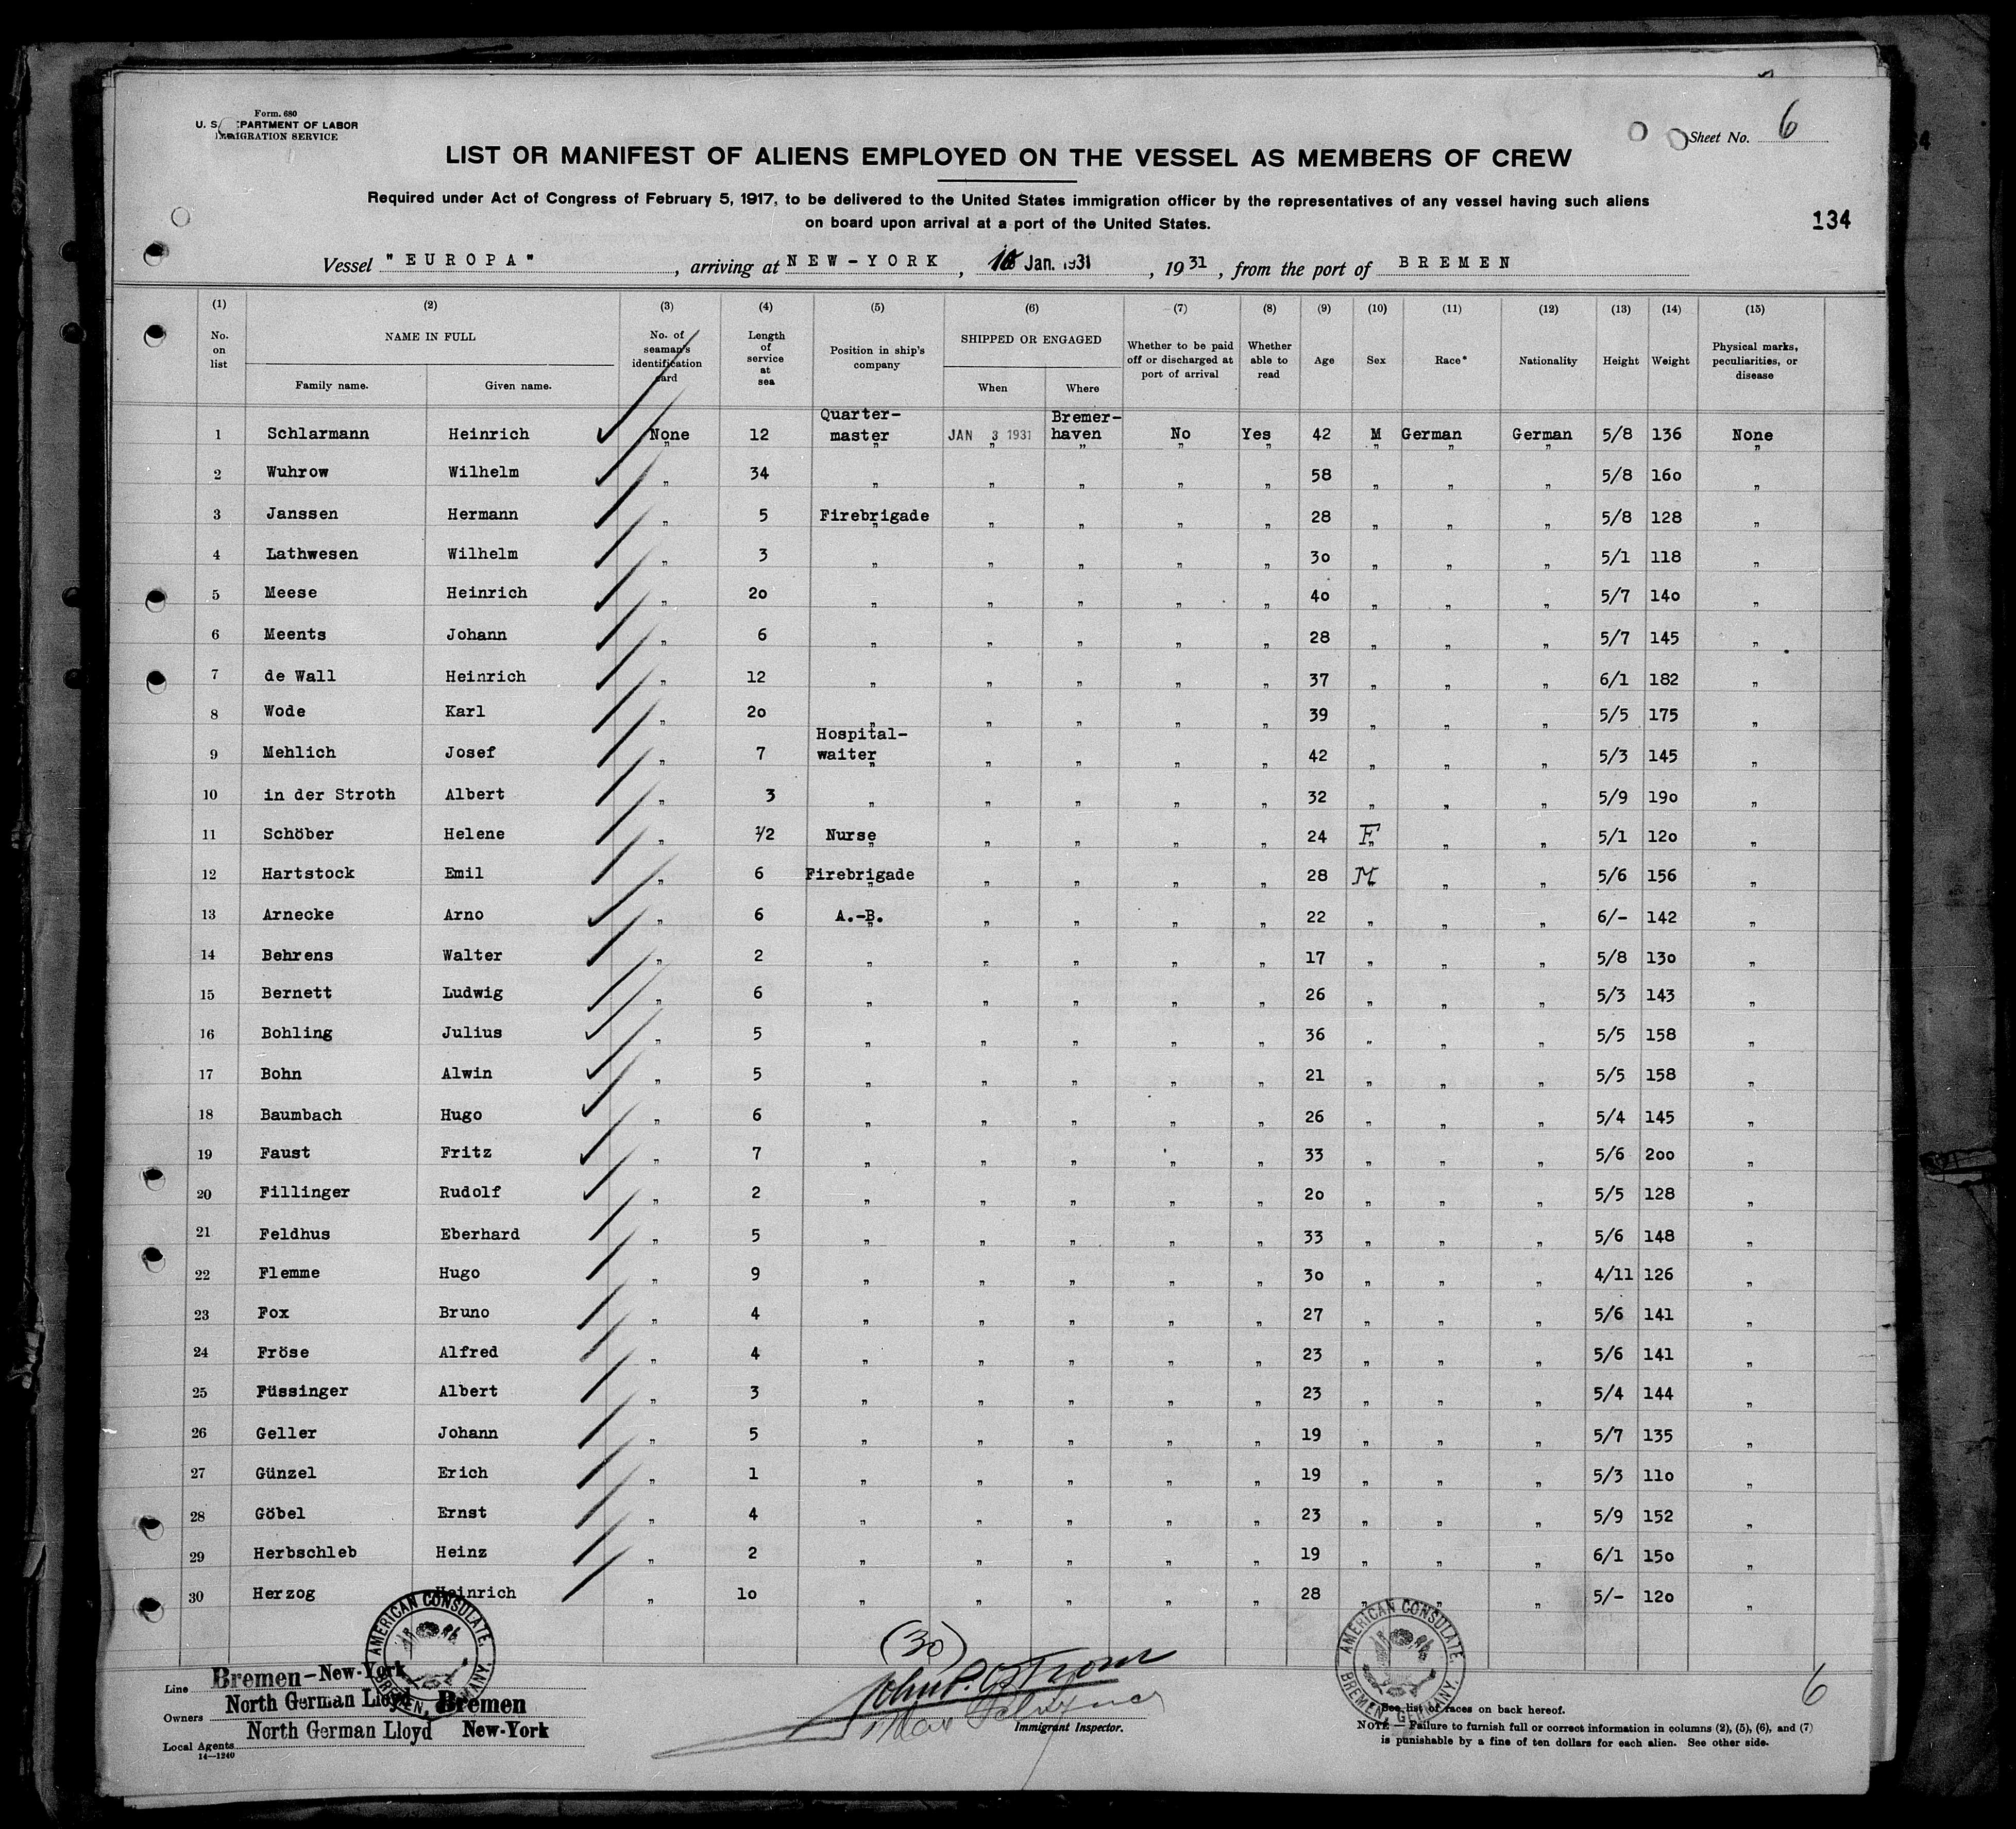 Form. 680
U. S. DEPARTMENT OF LABOR
IMMIGRATION SERVICE
Sheet No. 6
LIST OR MANIFEST OF ALIENS EMPLOYED ON THE VESSEL AS MEMBERS OF CREW
Required under Act of Congress of February 5, 1917, to be delivered to the United States immigration officer by the representatives of any vessel having such aliens
on board upon arrival at a port of the United States.
134
Vessel "EUROPA", arriving at NEW-YORK, Jan. 1931, 1931, from the port of BREMEN
(1) (2) (3) (4) (5) (6) (7) (8) (9) (10) (11) (12) (13) (14) (15)
No. on list NAME IN FULL Family name. Given name. No. of seaman's identification card Length of service at sea Position in ship's company SHIPPED OR ENGAGED When Where Whether to be paid off or discharged at port of arrival Whether able to read Age Sex Race* Nationality Height Weight Physical marks, peculiarities, or disease
1 Schlarmann Heinrich None 12 Quarter-master JAN 3 1931 Bremer-haven No Yes 42 M German German 5/8 136 None
2 Wuhrow Wilhelm " 34 " " " " " 58 " " " 5/8 160 "
3 Janssen Hermann " 5 Firebrigade " " " " 28 " " " 5/8 128 "
4 Lathwesen Wilhelm " 3 " " " " " 30 " " " 5/1 118 "
5 Meese Heinrich " 20 " " " " " 40 " " " 5/7 140 "
6 Meents Johann " 6 " " " " " 28 " " " 5/7 145 "
7 de Wall Heinrich " 12 " " " " " 37 " " " 6/1 182 "
8 Wode Karl " 20 " " " " " 39 " " " 5/5 175 "
9 Mehlich Josef " 7 Hospital-waiter " " " " 42 " " " 5/3 145 "
10 in der Stroth Albert " 3 " " " " " 32 " " " 5/9 190 "
11 Schöber Helene " 1/2 Nurse " " " " 24 F " " 5/1 120 "
12 Hartstock Emil " 6 Firebrigade " " " " 28 M " " 5/6 156 "
13 Arnecke Arno " 6 A.-B. " " " " 22 " " " 6/- 142 "
14 Behrens Walter " 2 " " " " " 17 " " " 5/8 130 "
15 Bernett Ludwig " 6 " " " " " 26 " " " 5/3 143 "
16 Bohling Julius " 5 " " " " " 36 " " " 5/5 158 "
17 Bohn Alwin " 5 " " " " " 21 " " " 5/5 158 "
18 Baumbach Hugo " 6 " " " " " 26 " " " 5/4 145 "
19 Faust Fritz " 7 " " " " " 33 " " " 5/6 200 "
20 Fillinger Rudolf " 2 " " " " " 20 " " " 5/5 128 "
21 Feldhus Eberhard " 5 " " " " " 33 " " " 5/6 148 "
22 Flemme Hugo " 9 " " " " " 30 " " " 4/11 126 "
23 Fox Bruno " 4 " " " " " 27 " " " 5/6 141 "
24 Fröse Alfred " 4 " " " " " 23 " " " 5/6 141 "
25 Füssinger Albert " 3 " " " " " 23 " " " 5/4 144 "
26 Geller Johann " 5 " " " " " 19 " " " 5/7 135 "
27 Günzel Erich " 1 " " " " " 19 " " " 5/3 110 "
28 Göbel Ernst " 4 " " " " " 23 " " " 5/9 152 "
29 Herbschleb Heinz " 2 " " " " " 19 " " " 6/1 150 "
30 Herzog Heinrich " 10 " " " " " 28 " " " 5/- 120 "
(30)
AMERICAN CONSULATE, BREMEN, GERMANY.
AMERICAN CONSULATE, BREMEN, GERMANY.
Line Bremen-New-York
Owners North German Lloyd Bremen
Local Agents North German Lloyd New-York
14-1240
Immigrant Inspector.
6
See list of races on back hereof.
NOTE — Failure to furnish full or correct information in columns (2), (5), (6), and (7)
is punishable by a fine of ten dollars for each alien. See other side.